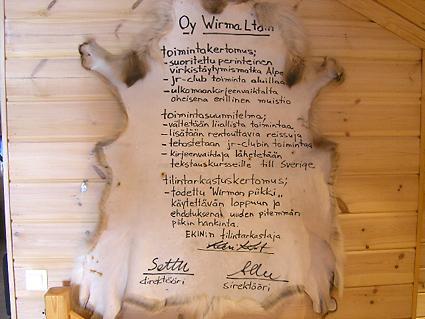 Oy Wirma Ltdin
toimintakertomus;
- suoritettu perinteinen
virkistäytymismatka Alpe
- jr-club toiminta aluillaa
- ulkomaankirjeenvaihtajalta
oheisena erillinen muistio
toimintasuunnitelma;
- vältetään liiallista toimintaa
- lisätään rentouttavia reissuja
- tehostetaan jr-clubin toimintaa
- kirjeenvaihtaja lähetetään
tekstauskursseille till Sverige
tilintarkastuskertomus;
- todettu "Wirman piikki"
käytettävän loppuun ja
ehdotuksena uuden pitemmän
piikin hankinta.
EKIN:n tilintarkastaja
direktööri
sirektööri